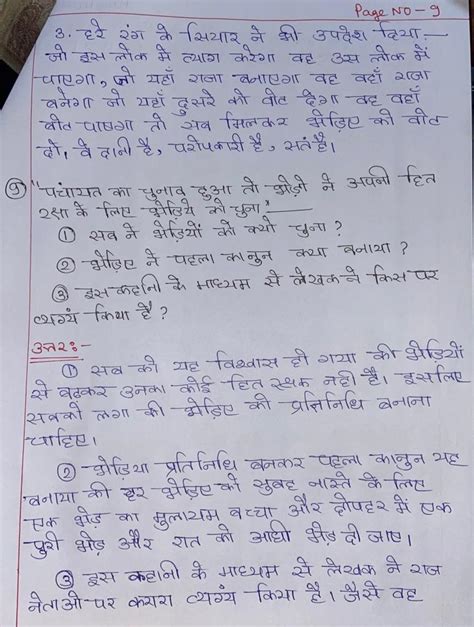 Page NO - 9
3. हरे रंग के सियार ने भी उपदेश दिया —
जो इस लोक में त्याग करेगा वह उस लोक में
पाएगा, जो यहाँ राजा बनाएगा वह वहाँ राजा
बनेगा जो यहाँ दुसरे को वोट देगा वह वहाँ
वोट पाएगा तो सब मिलकर भेड़िए को वोट
दो, वे दानी है, परोपकारी है, संत है।
9 "पंचायत का चुनाव हुआ तो भेड़ो ने अपनी हित
रक्षा के लिए भेड़िये को चुना" —
① सब ने भेड़ियों को क्यो चुना ?
② भेड़िए ने पहला कानुन क्या बनाया ?
③ इस कहानी के माध्यम से लेखक ने किस पर
व्यग्यं किया है ?
उत्तर:-
① सब को यह विश्वास हो गया की भेड़ियों
से बढकर उनका कोई हित रक्षक नही है। इसलिए
सबको लगा की भेड़िए को प्रतिनिधि बनाना
चाहिए।
② भेड़िया प्रतिनिधि बनकर पहला कानुन यह
बनाया की हर भेड़िए को सुबह नास्ते के लिए
एक भेड़ का मुलायम बच्चा और दोपहर में एक
पुरी भेड़ और रात को आधी भेड़ दी जाए।
③ इस कहानी के माध्यम से लेखक ने राज
नेताओ पर करारा व्यग्यं किया है। जैसे वह